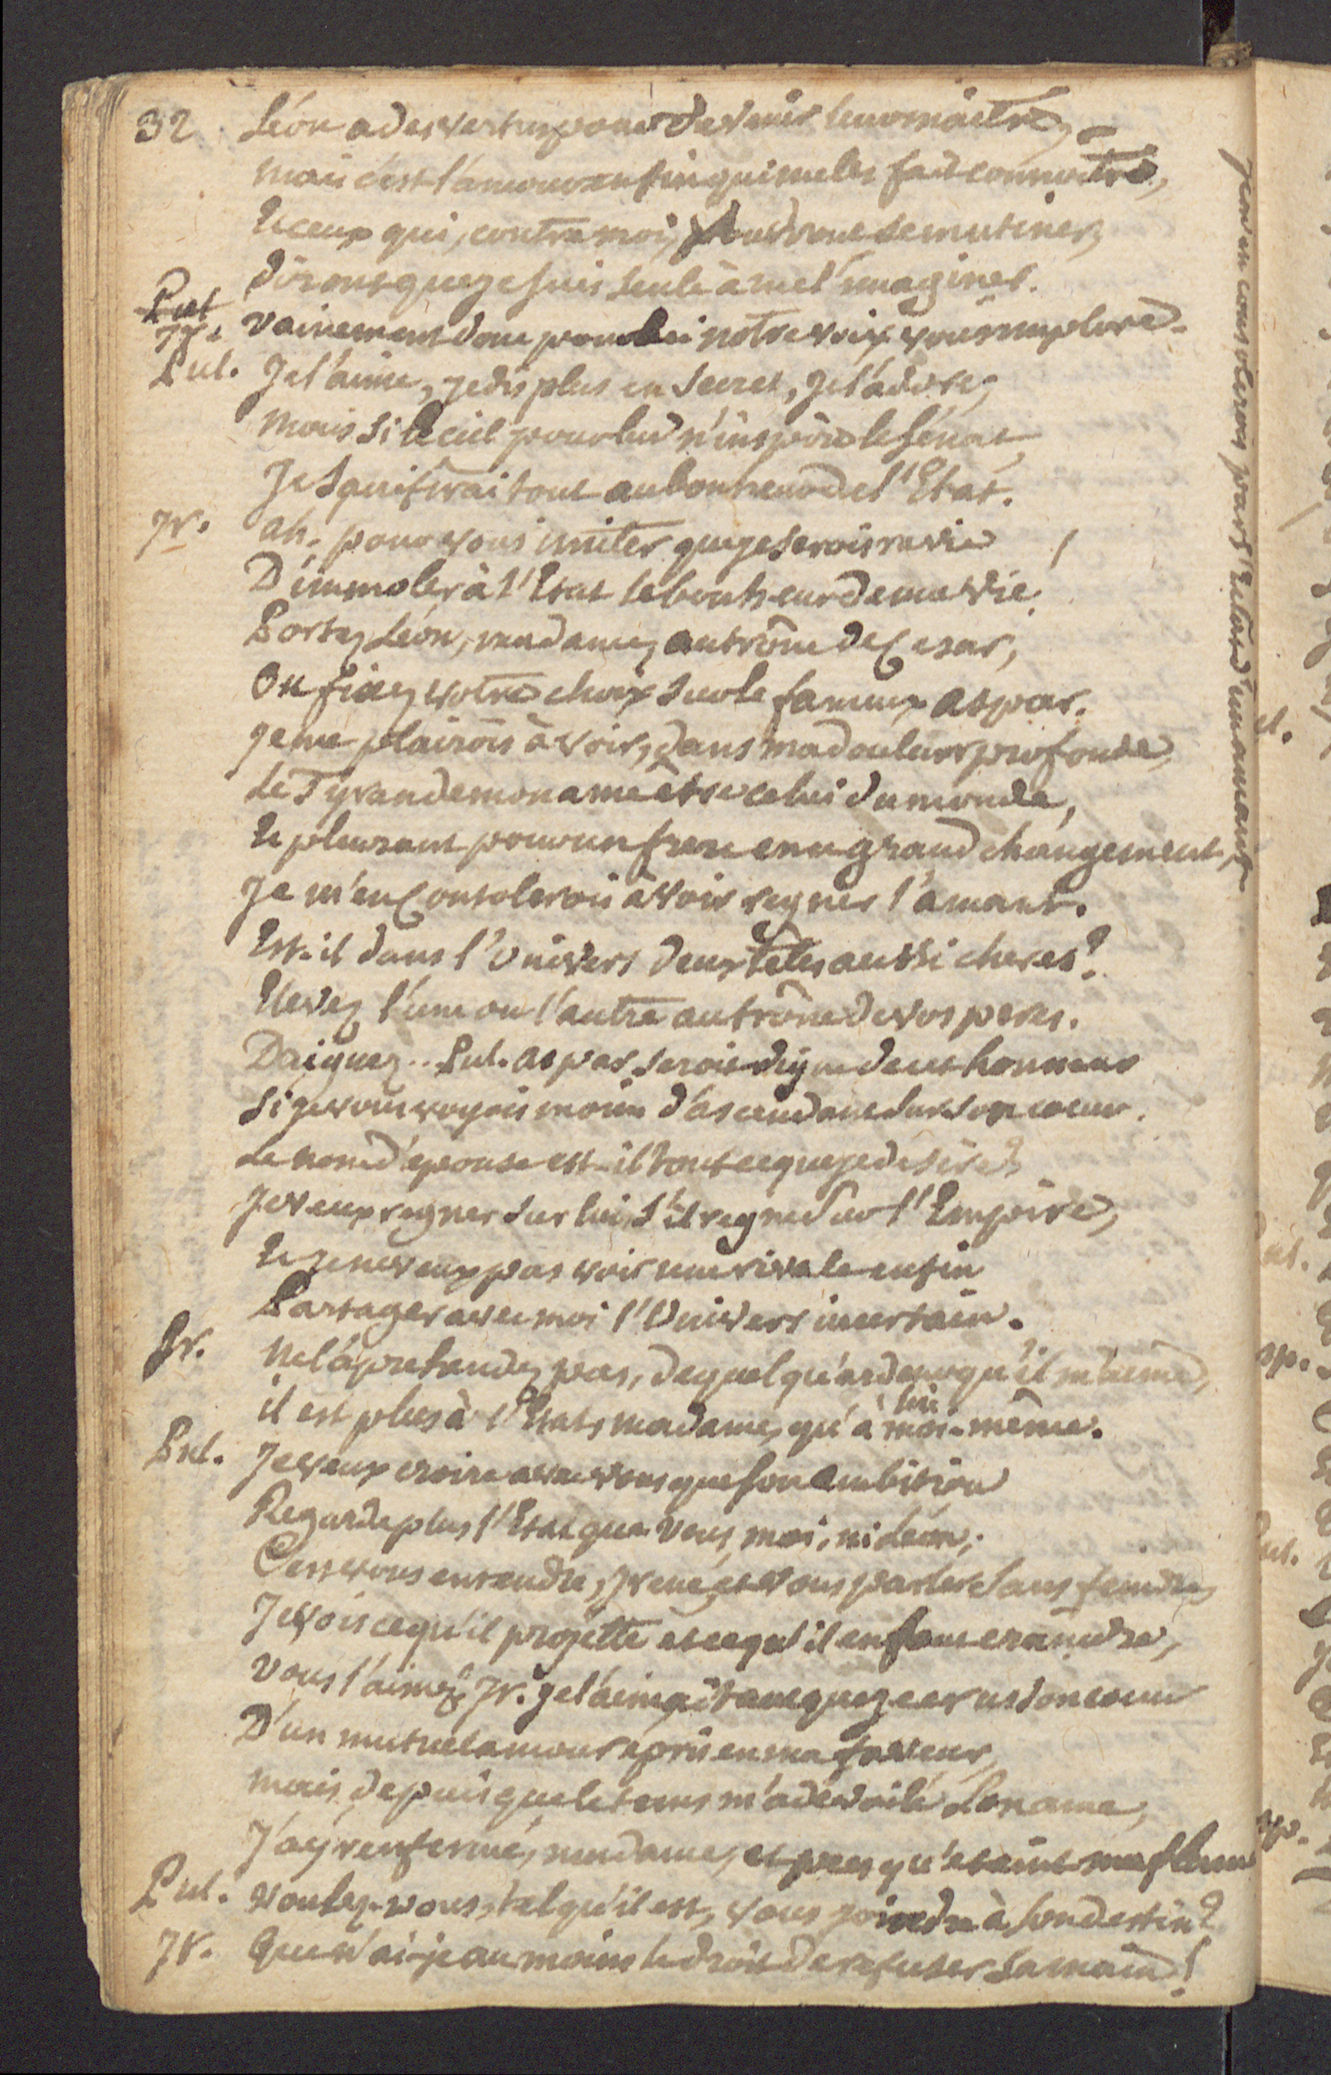 32 Léon a des vertus pour devenir leur maitre,
mais c'est l'amour enfin qui me les fait connoitre,
Et ceux qui, contre moi, voudront se mutiner,
Diront que je suis seule à me l'imaginer.
Pul
Ir. vainement donc pour lui notre voix vous implore.
Pul. Je l'aime, je dis plus en secret, je l'adore;
Mais si le ciel pour lui n'inspire le sénat,
Je sacrifirai tout au bonheur de l'Etat.
Ir. ah. pour vous imiter que je serois ravie !
D'immoler à l'Etat le bonheur de ma vie!
Portez Léon, madame, au trône de Cesar,
Ou fixez votre choix sur le fameux aspar.
Je me plairois à voir, dans ma douleur profonde
Le Tyran de mon ame être celui du monde,
Et pleurant pour un frere en un grand changement,
Je m'en consolerois à voir regner l'amant.
Est-il dans l'Univers deux têtes aussi cheres?
Elevez l'une ou l'autre au trône de vos peres.
Daignez.. Pul. aspar seroit digne de cet honneur
Si je vous voyois moins d'ascendant sur son coeur.
Le nom d'epouse est-il tout ce que je desire?
Je veux regner sur lui, s'il regne sur l'Empire,
Et je ne veux pas voir une rivale enfin
Partager avec moi l'Univers incertain.
Ir. Ne l'aprehendez pas, de quelqu'ardeur qu'il m'aime,
il est plus à l'Etat, madame, qu'à moi-même.
lui
Pul. Je veux croire avec vous que son ambition
Regarde plus l'Etat que vous, moi, ni Léon;
C'est vous entendre, Irene, et vous parler sans feindre,
Je vois ce qu'il projette et ce qu'il en faut craindre,
Vous l'aimez? Ir. je l'aimai tant que je crus son coeur
D'un mutuel amour epris en ma faveur,
mais, depuis que le tems m'a dévoilé son ame,
J'ay renfermé, madame, et presqu'eteint ma flame
Pul. Voulez-vous, tel qu'il est, vous joindre à son destin?
Ir. Que n'ai-je au moins le droit de refuser sa main!
je m'en consolerois par l'Etat d'un amant